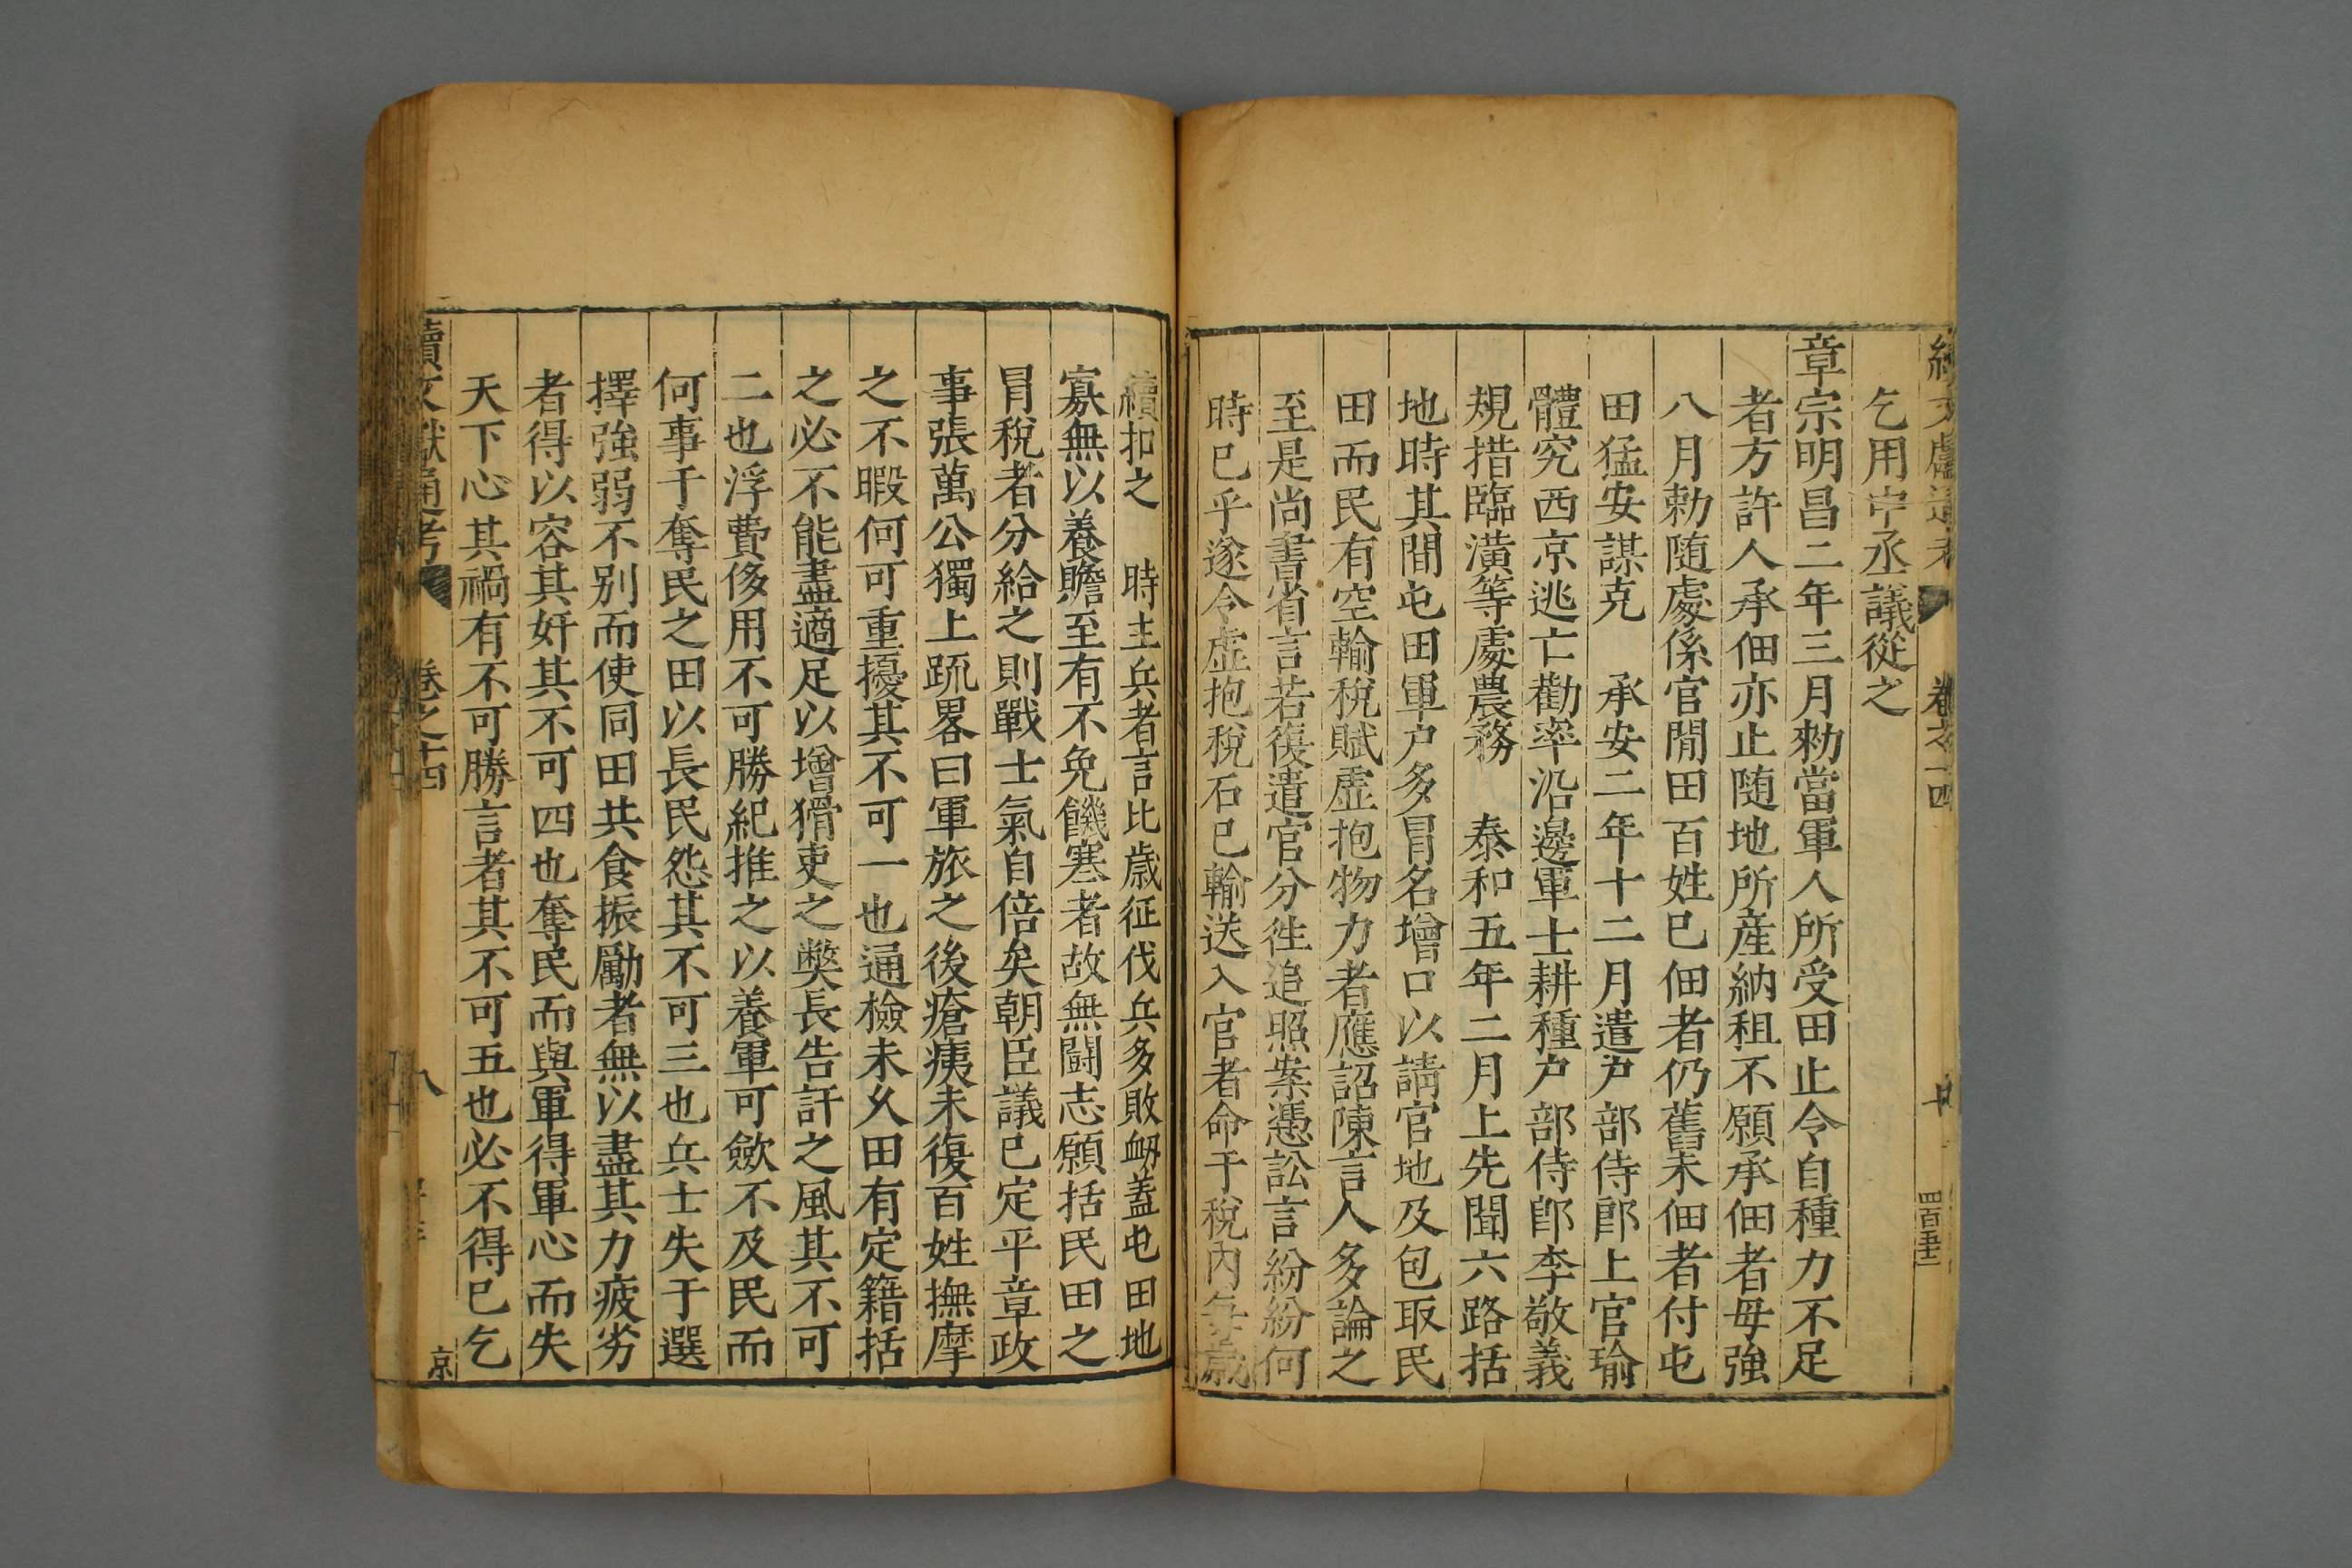 乞用守丞議從之
章宗明昌二年三月勑當軍人所受田止令自種力不足
者方許人承佃亦止随地所産納租不願承佃者毋強
八月勑随處係官閒田百姓已佃者仍舊未佃者付屯
田猛安謀克　承安二年十二月遣戸部侍郎上官瑜
體究西京逃亡勸率沿邊軍士耕種戸部侍郎李敬義
規措臨潢等處農務　泰和五年二月上先聞六路括
地時其間屯田軍户多冒名增口以請官地及包取民
田而民有空輸稅賦虛抱物力者應詔陳言人多論之
至是尚書省言若復遣官分徃追照案憑訟言紛紛何
時已乎遂令虛抱稅石已輸送入官者命于稅內每歲
續扣之　時主兵者言比歲征伐兵多敗衂蓋屯田地
寡無以養贍至有不免饑寒者故無鬪志願括民田之
冒稅者分給之則戰士氣自倍矣朝臣議已定平章政
事張萬公獨上疏畧曰軍旅之後瘡痍未復百姓撫摩
之不暇何可重擾其不可一也通檢未久田有定籍括
之必不能盡適足以增猾吏之弊長告訐之風其不可
二也浮費侈用不可勝紀推之以養軍可歛不及民而
何事于奪民之田以長民怨其不可三也兵士失于選
擇強弱不别而使同田共食振勵者無以盡其力疲劣
者得以容其奸其不可四也奪民而與軍得軍心而失
天下心其禍有不可勝言者其不可五也必不得已乞
續文獻通考　卷之十四　八　京